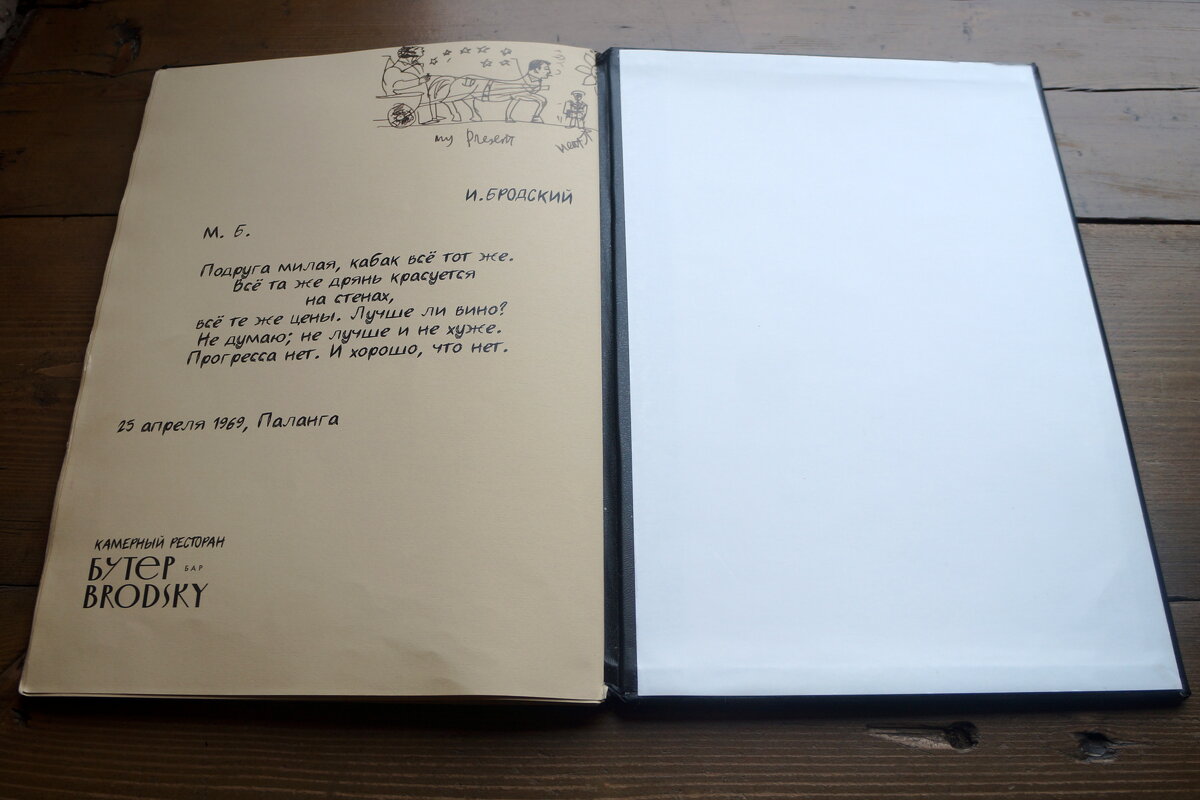 my Present
next
И. БРОДСКИЙ
М. Б.
Подруга милая, кабак всё тот же.
Всё та же дрянь красуется
на стенах,
всё те же цены. Лучше ли вино?
Не думаю; не лучше и не хуже.
Прогресса нет. И хорошо, что нет.
25 апреля 1969, Паланга
КАМЕРНЫЙ РЕСТОРАН
БУТЕР БАР
BRODSKY